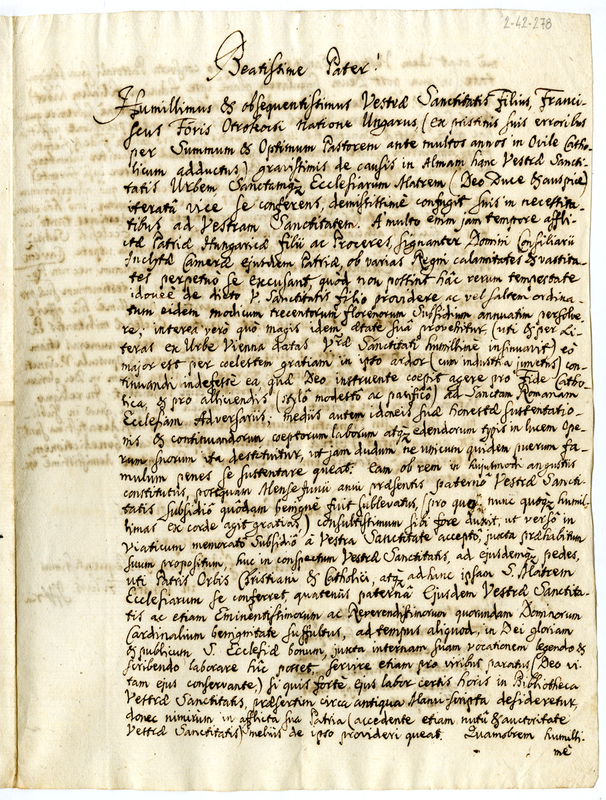 2-42-278
Beatissime Pater!
Humillimus & obsequentissimus Vestræ Sanctitatis Filius, Franci-
scus Foris Otrokocsi Natione Ungarus, (ex pristinis suis erroribus
per Summum & Optimum Pastorem ante multos annos in Ovile Catho-
licum adductus) gravissimis de causis in Almam hanc Vestræ Sancti-
tatis Urbem Sanctamq; Ecclesiarum Matrem (Deo Duce & auspice)
iteratâ vice se conferens, demississime confugit suis in necessita-
tibus ad Vestram Sanctitatem. A multo enim jam tempore affli-
ctæ Patriæ Hungaricæ filii ac Proceres, signanter Domini Consiliarii
Inclytæ Cameræ ejusdem Patriæ, ob varias Regni calamitates & vastita-
tes perpetuo se excusant, quòd non possint hâc rerum tempestate
idoneè de dicto V. Sanctitatis filio providere ac vel saltem ordina-
tum eidem modicum trecentorum florenorum Subsidium annuatim persolve-
re; interea verò quò magis idem ætate suâ provehitur (uti & per Li-
teras ex Urbe Vienna datas Vræ Sanctitati humillimè insinuavit) eò
major est per coelestem gratiam in ipso ardor (cum industria junctus) con-
tinuandi indefessè ea quæ Deo instruente coepit agere pro Fide Catho-
lica, & pro alliciendis (stylo modesto ac pacifico) ad Sanctam Romanam
Ecclesiam Adversariis; mediis autem idoneis suæ honestæ sustentatio-
nis & continuandorum coeptorum laborum atq; edendorum typis in lucem Ope-
rum suorum ita destituitur, ut jam dudum ne unicum quidem puerum fa-
mulum penes se sustentare queat. Eam ob rem in hujusmodi angustiis
constitutus, postquam Mense Junii anni præsentis paterno Vestræ Sancti-
tatis subsidio quodam benignè fuit sublevatus, (pro quo nunc quoq; humil-
limas ex corde agit gratias) consultissimum sibi fore duxit, ut verso in
Viaticum memorato Subsidio à Vestra Sanctitate accepto, juxta præhabitum
suum propositum, huc in conspectum Vestræ Sanctitatis, ad ejusdemq; pedes,
uti Patris Orbis Christiani & Catholici, atq; ad hanc ipsam S. Matrem
Ecclesiarum se conferret, quatenus paternâ Ejusdem Vestræ Sanctita-
tis ac etiam Eminentissimorum ac Reverendissimorum quorundam Dominorum
Cardinalium benignitate suffultus, ad tempus aliquod, in Dei gloriam
& publicum S. Ecclesiæ bonum, juxta internam suam vocationem legendo &
scribendo laborare hîc posset, servire etiam pro viribus paratus (Deo vi-
tam ejus conservante,) si quis fortè ejus labor certis horis in Bibliotheca
Vestræ Sanctitatis, præsertim circa antiqua Manu-scripta desideretur,
donec nimirum in afflicta sua Patria (accedente etiam nutu & auctoritate
Vestræ Sanctitatis) meliùs de ipso provideri queat. Quamobrem humilli-
mè